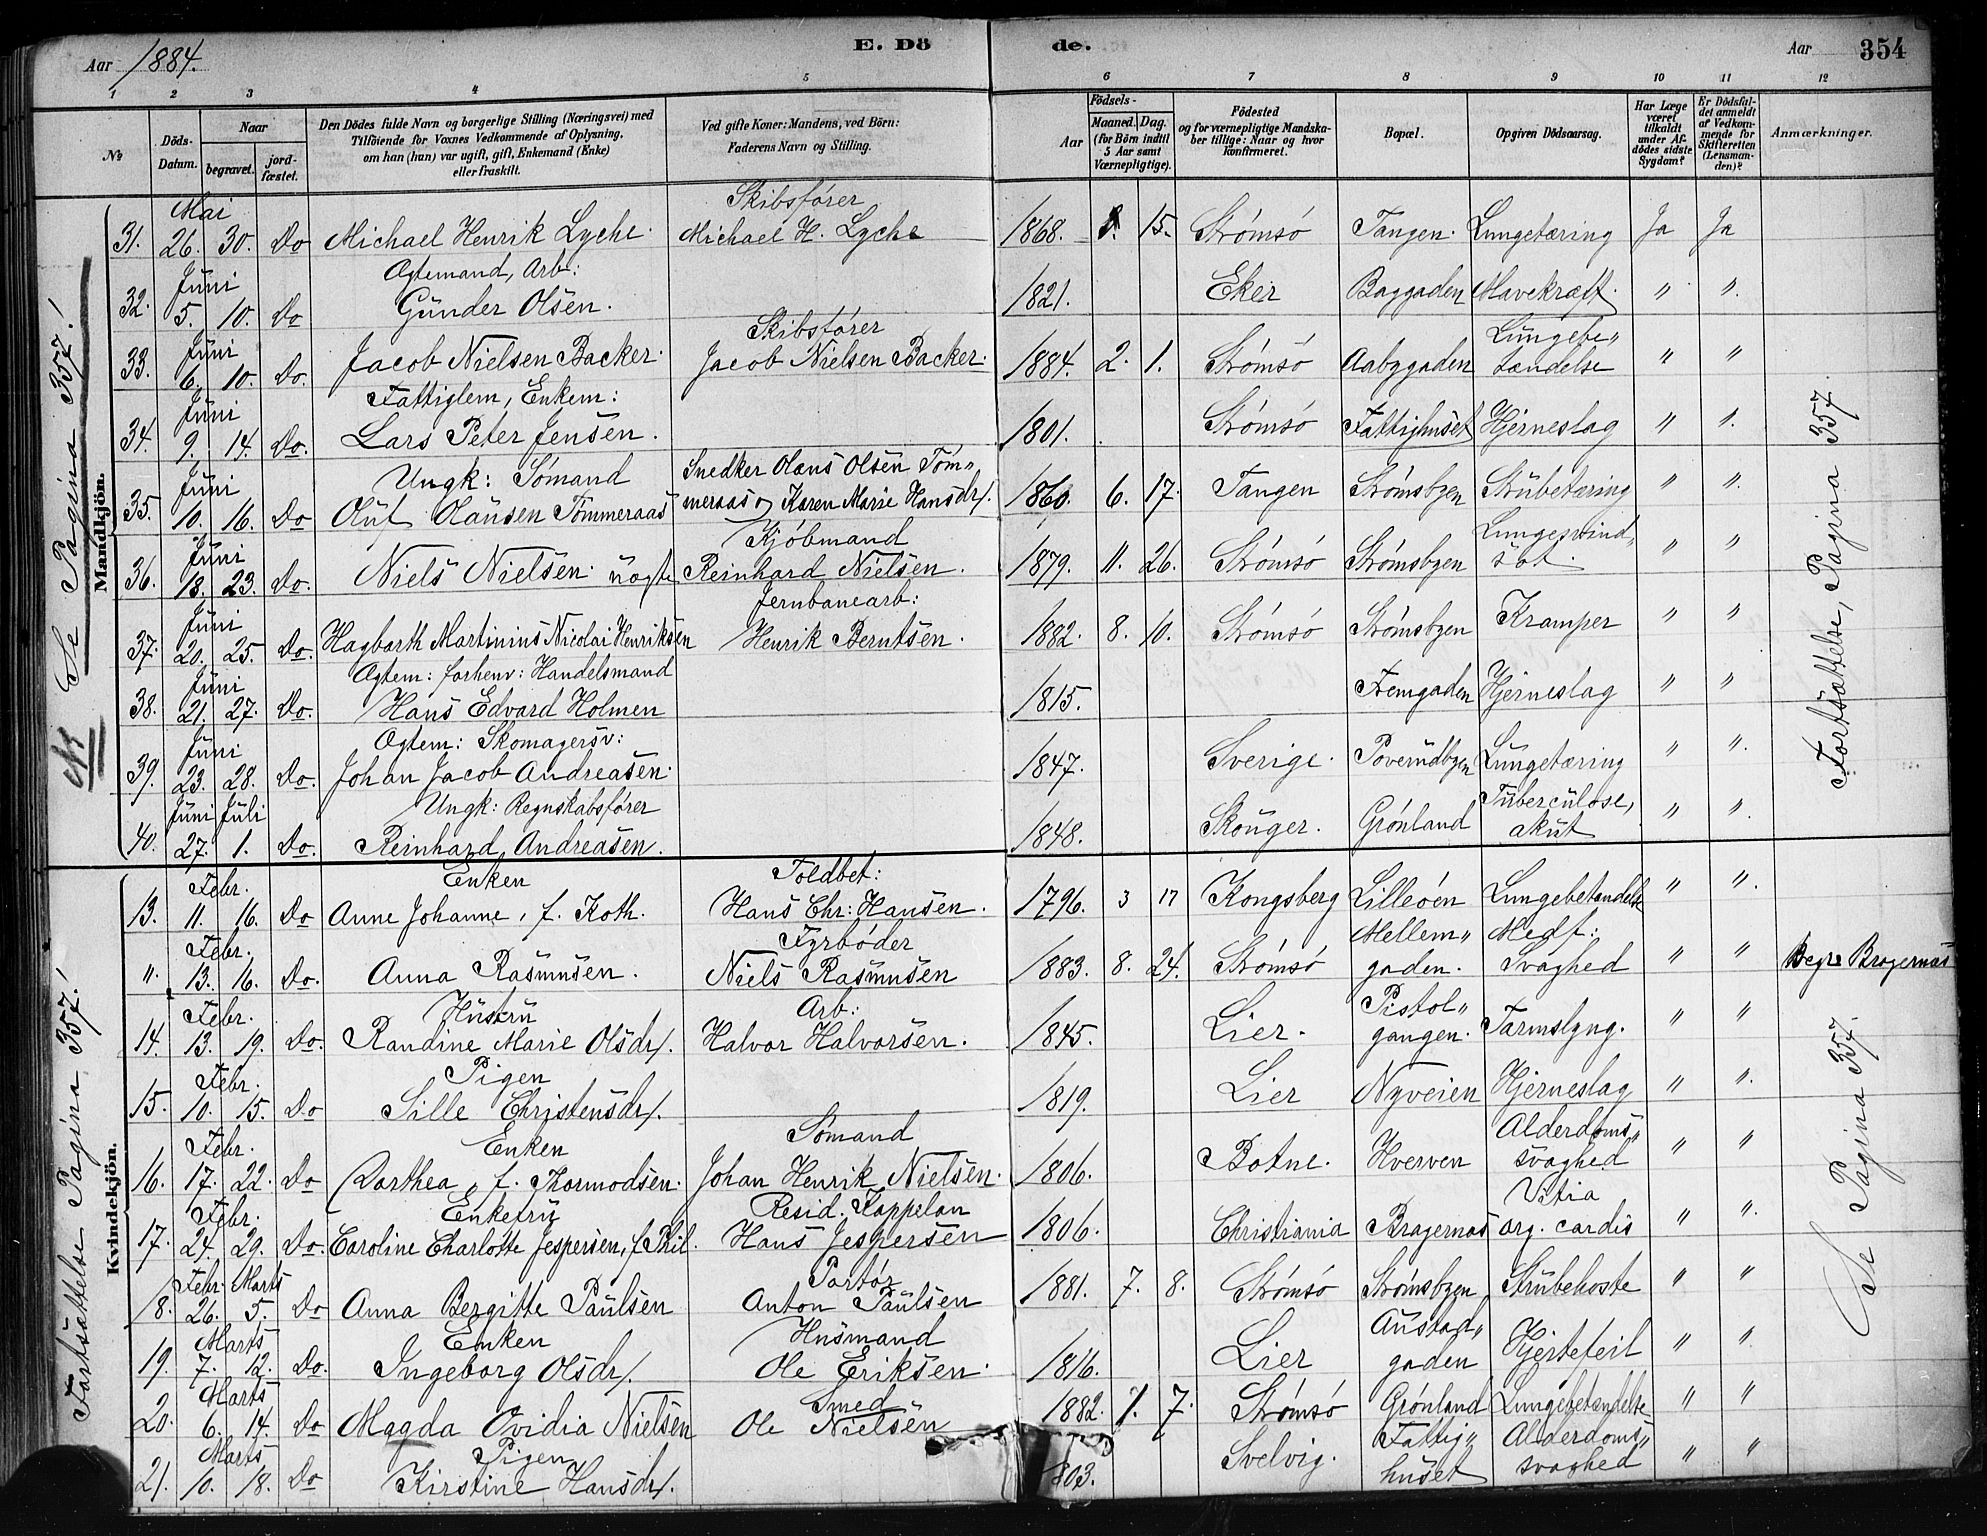 Aar 1884. E. Dö de. Aar 354
1 2 3 4 5 6 7 8 9 10 11 12
№ Döds-Datum. Naar begravet. jord-fæstet. Den Dödes fulde Navn og borgerlige Stilling (Næringsvei) med Tilföiende for Voxnes Vedkommende af Oplysning, om han (hun) var ugift, gift, Enkemand (Enke) eller fraskilt. Ved gifte Koner: Mandens, ved Börn: Faderens Navn og Stilling. Födsels- Aar Maaned. Dag. (for Börn indtil 5 Aar samt Værnepligtige). Födested og for værnepligtige Mandskaber tillige: Naar og hvor konfirmeret. Bopæl. Opgiven Dödsaarsag. Har Læge været tilkaldt under Afdödes sidste Sygdom? Er Dödsfaldet anmeldt af Vedkommende for Skifteretten (Lensmanden)? Anmærkninger.
Mandkjön.
NB Se Pagina 357!
Mai Skibsfører
31. 26. 30. Do Michael Henrik Lyche. Michael H. Lyche 1868. 15. Strømsø Tangen. Lungetæring Ja Ja
Juni Agtemand, Arb:
32. 5. 10. Do Gunder Olsen. 1821. Eker Baggaden Mavekræft. " "
Juni Skibsfører Lungebe"
33. 6. 10. Do. Jacob Nielsen Backer. Jacob Nielsen Backer. 1884. 2. 1. Strømsø Aabygaden tændelse " "
Juni Fattiglem, Enkem:
34. 9. 14. Do. Lars Peter Jensen. 1801. Strømsø Fattighuset Hjerneslag " "
Juni Ungk: Sømand Snedker Olaus Olsen Töm"
35. 10. 16. Do Oluf Olausen Tömmeraas meraas og Karen Marie Hansdr. 1860. 6. 17. Tangen Strømsbyen Strubetæring " "
Juni Kjöbmand Lungesvind"
36. 18. 23. Do. Niels Nielsen. Reinhard Nielsen. 1879. 11. 26. Strømsø Strømsbyen sot " "
Juni Jernbanearb:
37. 20. 25. Do. Hagbarth Martinius Nicolai Henriksen Henrik Berntsen. 1882. 8. 10. Strømsø Strømsbyen Kramper " "
Juni Agtem: forhenv: Handelsmand
38. 21. 27. Do. Hans Edvard Holmen 1815. Fremgaden Hjerneslag " "
Juni Agtem: Skomagersv:
39. 23. 28. Do. Johan Jacob Andreasen. 1847. Sverige. Poverudbyen Lungetæring " "
Juni Juli Ungk: Regnskabsfører Tuberculose,
40. 27. 1. Do. Reinhard Andreasen. 1848. Skouger. Grønland akut " "
Fortsættelse, Pagina 357.
Kvindekjön.
Fortsættelse Pagina 357!
Febr. Enken Toldbet:
13. 11. 16. Do Anne Johanne, f. Koth. Hans Chr: Hansen. 1796. 3 17 Kongsberg Lilleöen Lungebetændelse " "
Febr. Fyrbøder Mellem" Medf:
" 13. 16. Do. Anna Rasmusen. Niels Rasmusen 1883. 8. 24. Strømsø gaden. Svaghed " " Begr. Bragernæs
Febr. Hustru Arb: Pistol"
14. 13. 19. Do. Randine Marie Olsdr. Halvor Halvorsen. 1845. Lier. gangen. Tarmslyng. " "
Febr. Pigen
15. 10. 15. Do Sille Christensdr. 1819. Lier Nyveien Hjerneslag " "
Febr. Enken Sømand Alderdoms"
16. 17. 22. Do Dorthea, f. Thormodsen. Johan Henrik Nielsen. 1806. Botne. Hverven svaghed " "
Febr. Enkefru Resid. Kappelan Vitia
17. 24. 29. Do. Caroline Charlotte Jespersen, f. Phil. Hans Jespersen 1806. Christiania Bragernæs org. cardis " "
Febr. Marts Portør
18. 26. 5. Do Anna Bergitte Paulsen Anton Paulsen 1881. 7. 8. Strømsø Strømsbyen Strubehoste " "
Marts Enken Husmand Austad"
19. 7. 12. Do. Ingeborg Olsdr. Ole Eriksen. 1816. Lier gaden Hjertefeil " "
Marts Smed
20. 6. 14. Do Magda Ovidia Nielsen Ole Nielsen 1882. 1. 7. Strømsø Grønland Lungebetændelse " "
Marts Pigen Fattig" Alderdoms"
21. 10. 18. Do Kirstine Hansdr. 1803. Svelvig. huset svaghed " "
Se Pagina 357.